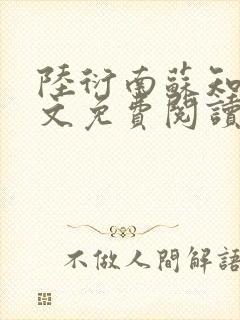 陸衍南蘇知
文免費閱讀
不做人間解語